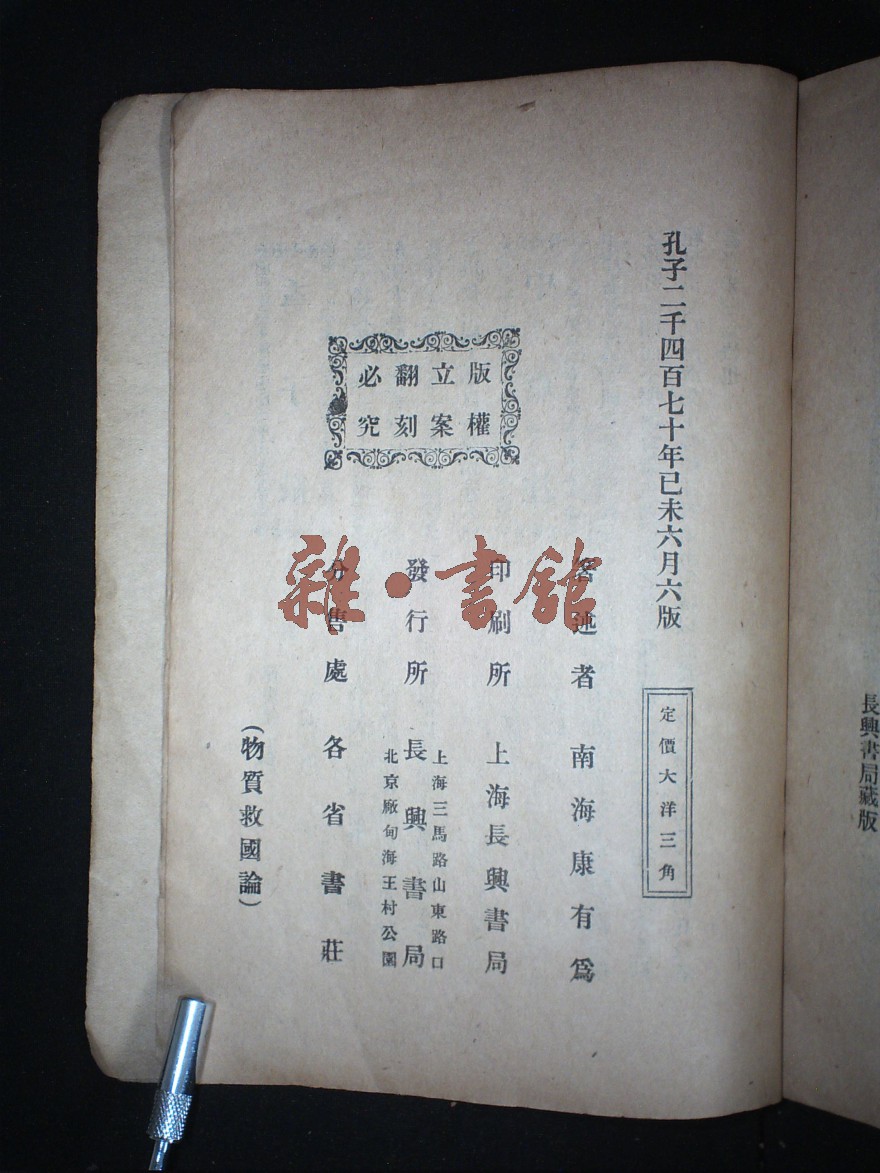 長興書局藏版
孔子二千四百七十年已未六月六版
定價大洋三角
版權
立案
翻刻
必究
著述者 南海康有爲
印刷所 上海長興書局
發行所 長興書局
上海三馬路山東路口
北京廠甸海王村公園
分售處 各省書莊
(物質救國論)
雜·書館